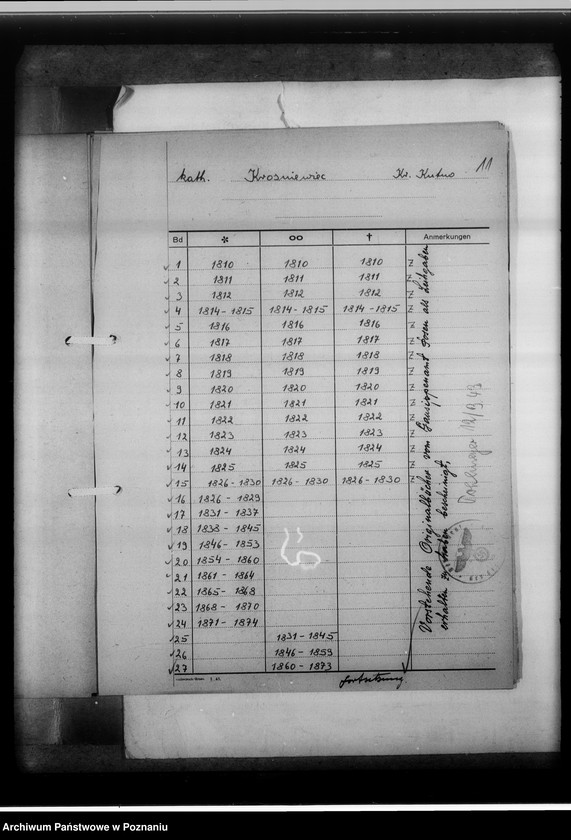 11
kath. Krosniewiec Kr. Kutno
Bd * ∞ † Anmerkungen
1 1810 1810 1810 Z
2 1811 1811 1811 Z
3 1812 1812 1812 Z
4 1814-1815 1814-1815 1814-1815 Z
5 1816 1816 1816 Z
6 1817 1817 1817 Z
7 1818 1818 1818 Z
8 1819 1819 1819 Z
9 1820 1820 1820 Z
10 1821 1821 1821 Z
11 1822 1822 1822 Z
12 1823 1823 1823 Z
13 1824 1824 1824 Z
14 1825 1825 1825 Z
15 1826-1830 1826-1830 1826-1830 Z
16 1826-1829
17 1831-1837
18 1838-1845
19 1846-1853
20 1854-1860
21 1861-1864
22 1865-1868
23 1868-1870
24 1871-1874
25 1831-1845
26 1846-1859
27 1860-1873
Fortsetzung
Vorstehende Originalbücher vom Gausippenamt Posen als Leihgaben
erhalten zu haben bescheinigt,
12/9.43
Archiwum Państwowe w Poznaniu